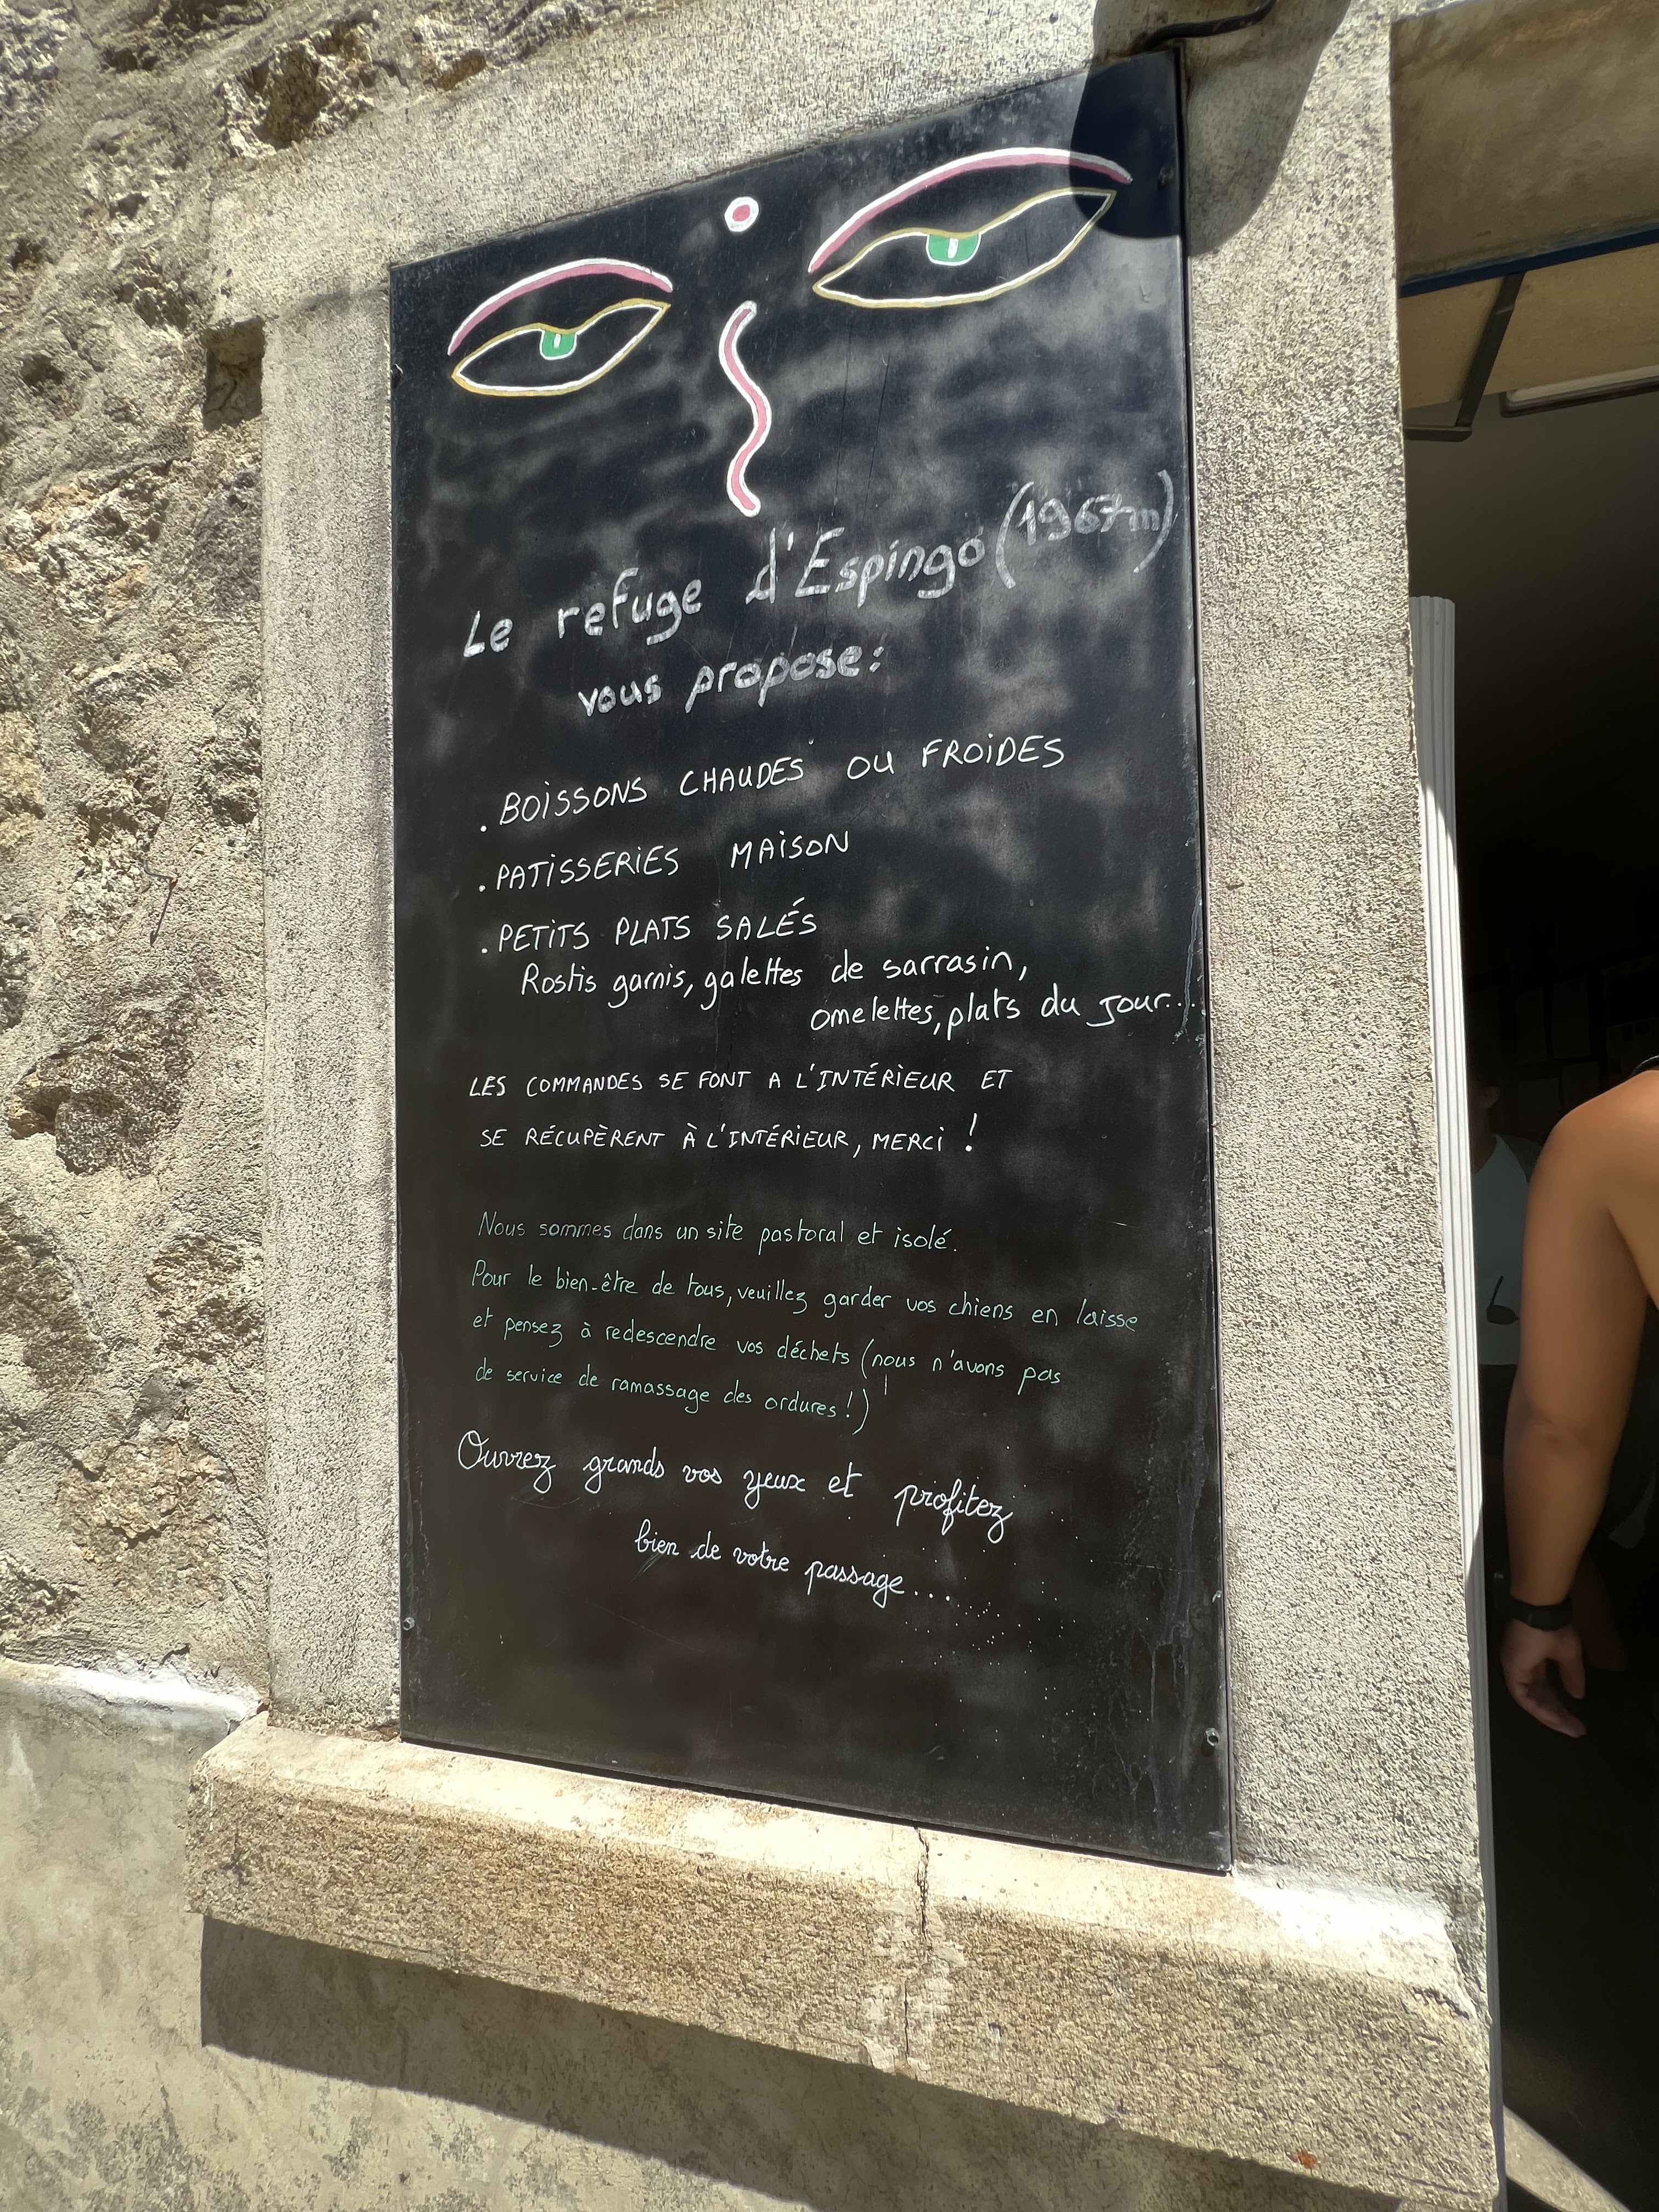 Le refuge d'Espingo (1967m)
vous propose:
. BOISSONS CHAUDES OU FROIDES
. PATISSERIES MAISON
. PETITS PLATS SALÉS
Rostis garnis, galettes de sarrasin,
omelettes, plats du jour...
LES COMMANDES SE FONT A L'INTÉRIEUR ET
SE RÉCUPÈRENT À L'INTÉRIEUR, MERCI !
Nous sommes dans un site pastoral et isolé.
Pour le bien-être de tous, veuillez garder vos chiens en laisse
et pensez à redescendre vos déchets (nous n'avons pas
de service de ramassage des ordures !)
Ouvrez grands vos yeux et profitez
bien de votre passage...